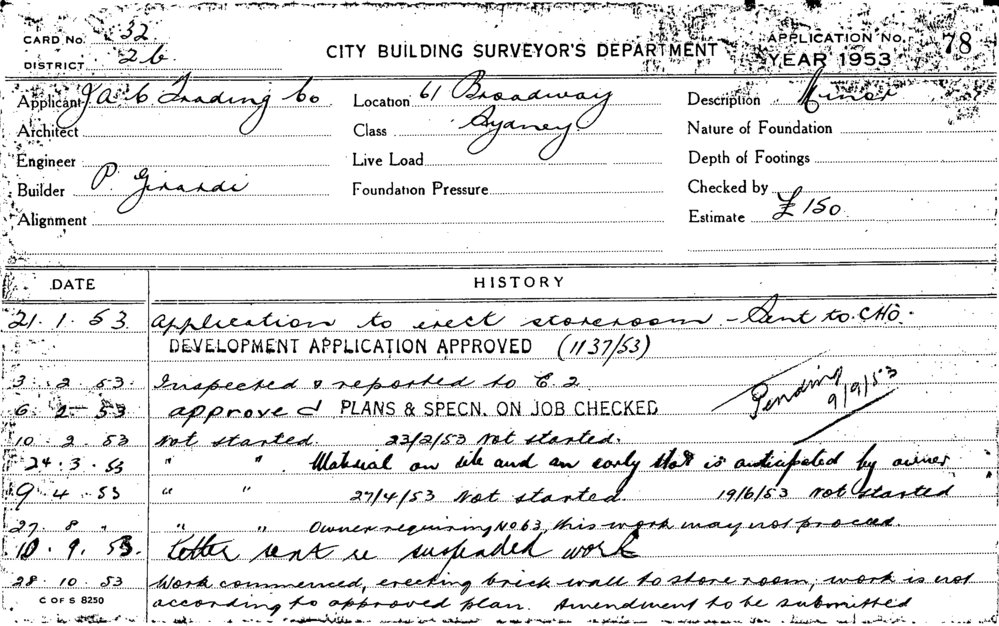 CARD No. 32
DISTRICT 26
CITY BUILDING SURVEYOR'S DEPARTMENT
APPLICATION No. 78
YEAR 1953
Applicant J A C Trading Co
Location 61 Broadway
Description Minor
Architect
Class Sydney
Nature of Foundation
Engineer
Live Load
Depth of Footings
Builder P. Girardi
Foundation Pressure
Checked by
Alignment
Estimate £150
DATE HISTORY
21. 1. 53 Application to erect storeroom - Sent to CHO.
DEVELOPMENT APPLICATION APPROVED (1137/53)
3. 2. 53. Inspected & reported to E. 2
Pending 9/9/53
6 2 53 approved PLANS & SPECN. ON JOB CHECKED
10. 2. 53 Not started. 23/2/53 Not started.
24. 3. 53 " " . Material on site and an early start is anticipated by owner
9. 4. 53 " " 27/4/53 Not started 19/6/53 Not started
27. 8 " " " Owner requiring No 63, this work may not proceed.
10. 9. 53. Letter sent re suspended work
28. 10. 53 Work commenced, erecting brick wall to store room, work is not
C OF S 8250 according to approved plan. Amendment to be submitted